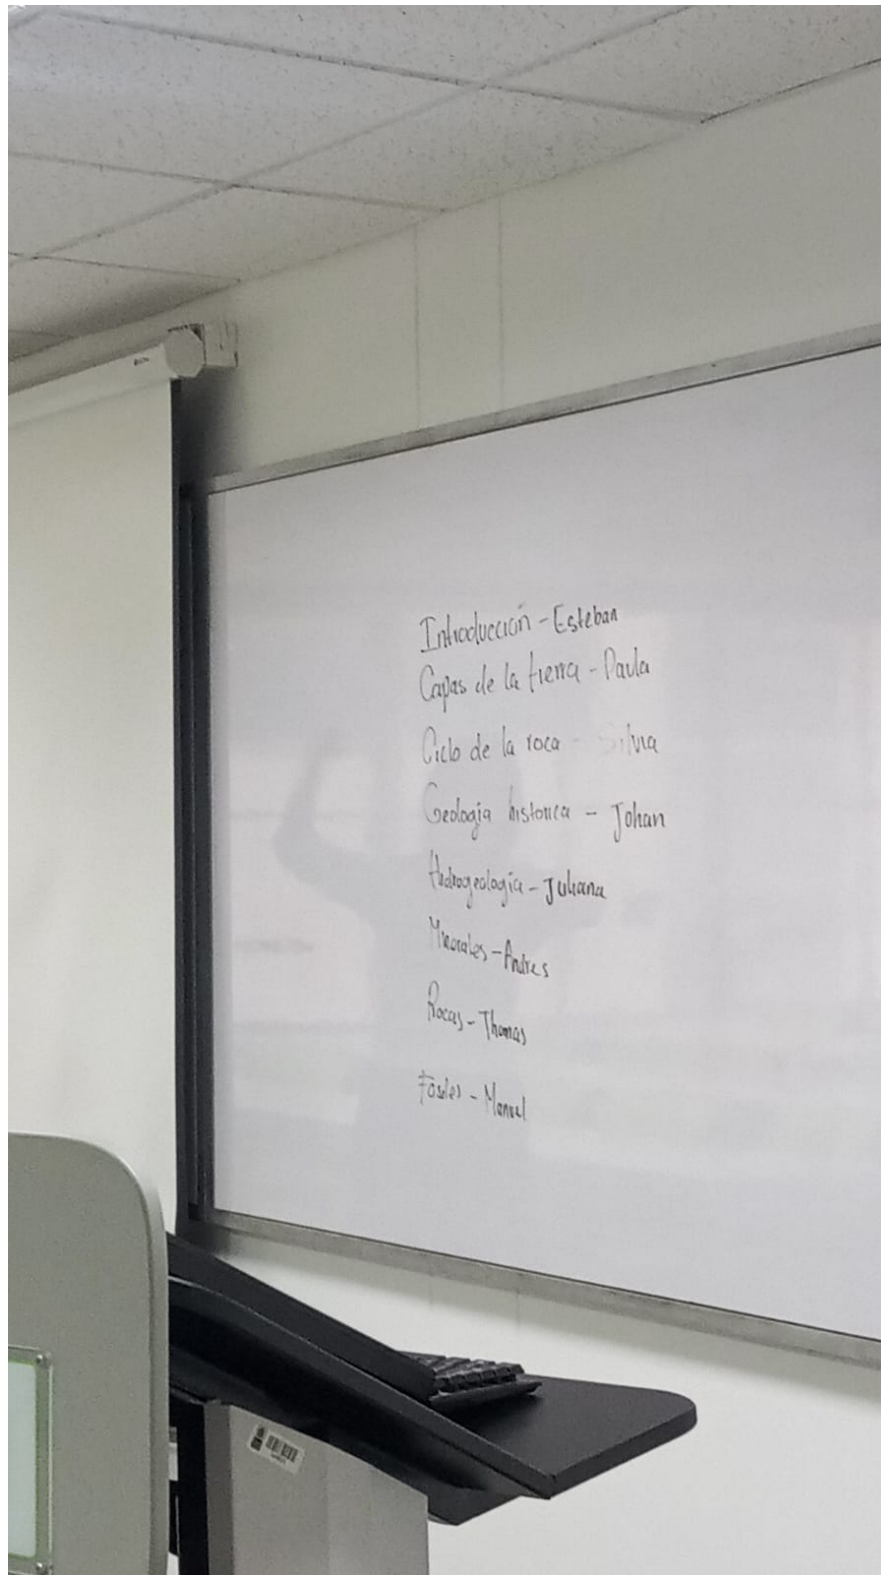 Introducción - Esteban
Capas de la tierra - Paula
Ciclo de la roca - Silvia
Geología historica - Johan
Hidrogeología - Juliana
Minerales - Andres
Rocas - Thomas
Fósiles - Manuel